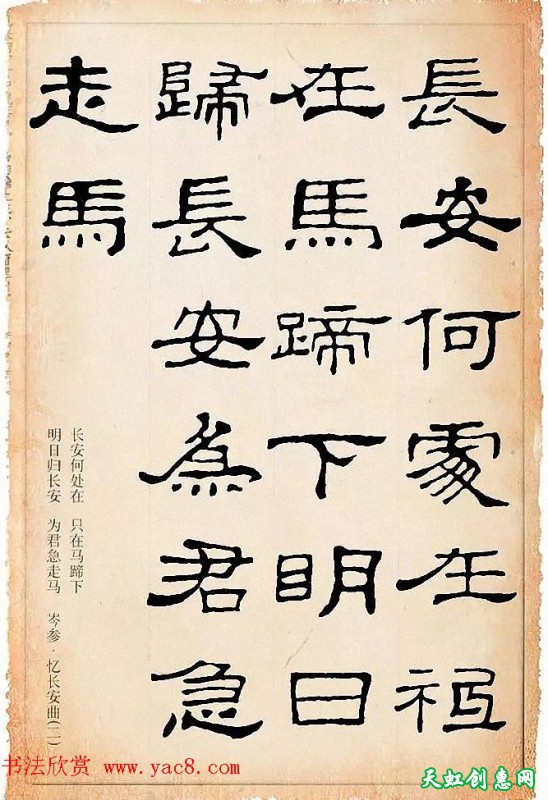 長安何處在祗
在馬蹄下明日
歸長安為君急
走馬
长安何处在　只在马蹄下
明日归长安　为君急走马　岑参·忆长安曲(二)
书法欣赏 www.yac8.com
天虹创惠网